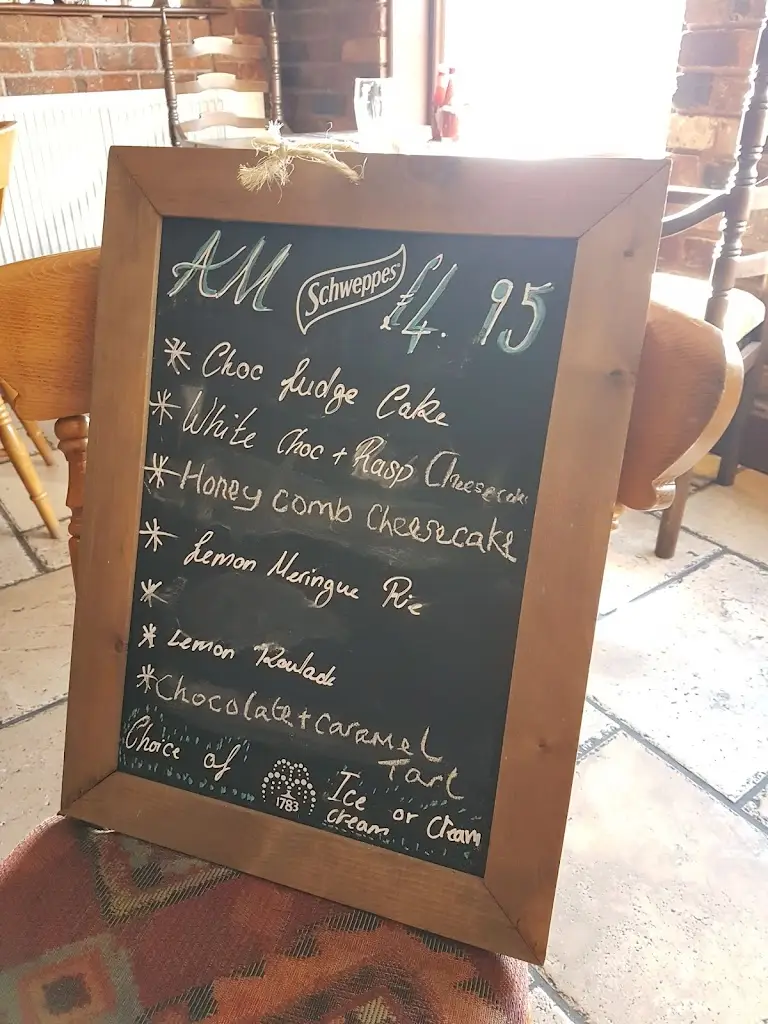 AM Schweppes £4.95
* Choc fudge Cake
* White Choc + Rasp Cheesecake
* Honey comb Cheesecake
* Lemon Meringue Pie
*
* Lemon Roulade
* Chocolate + caramel
Tart
Choice of 1783 Ice cream or Cream